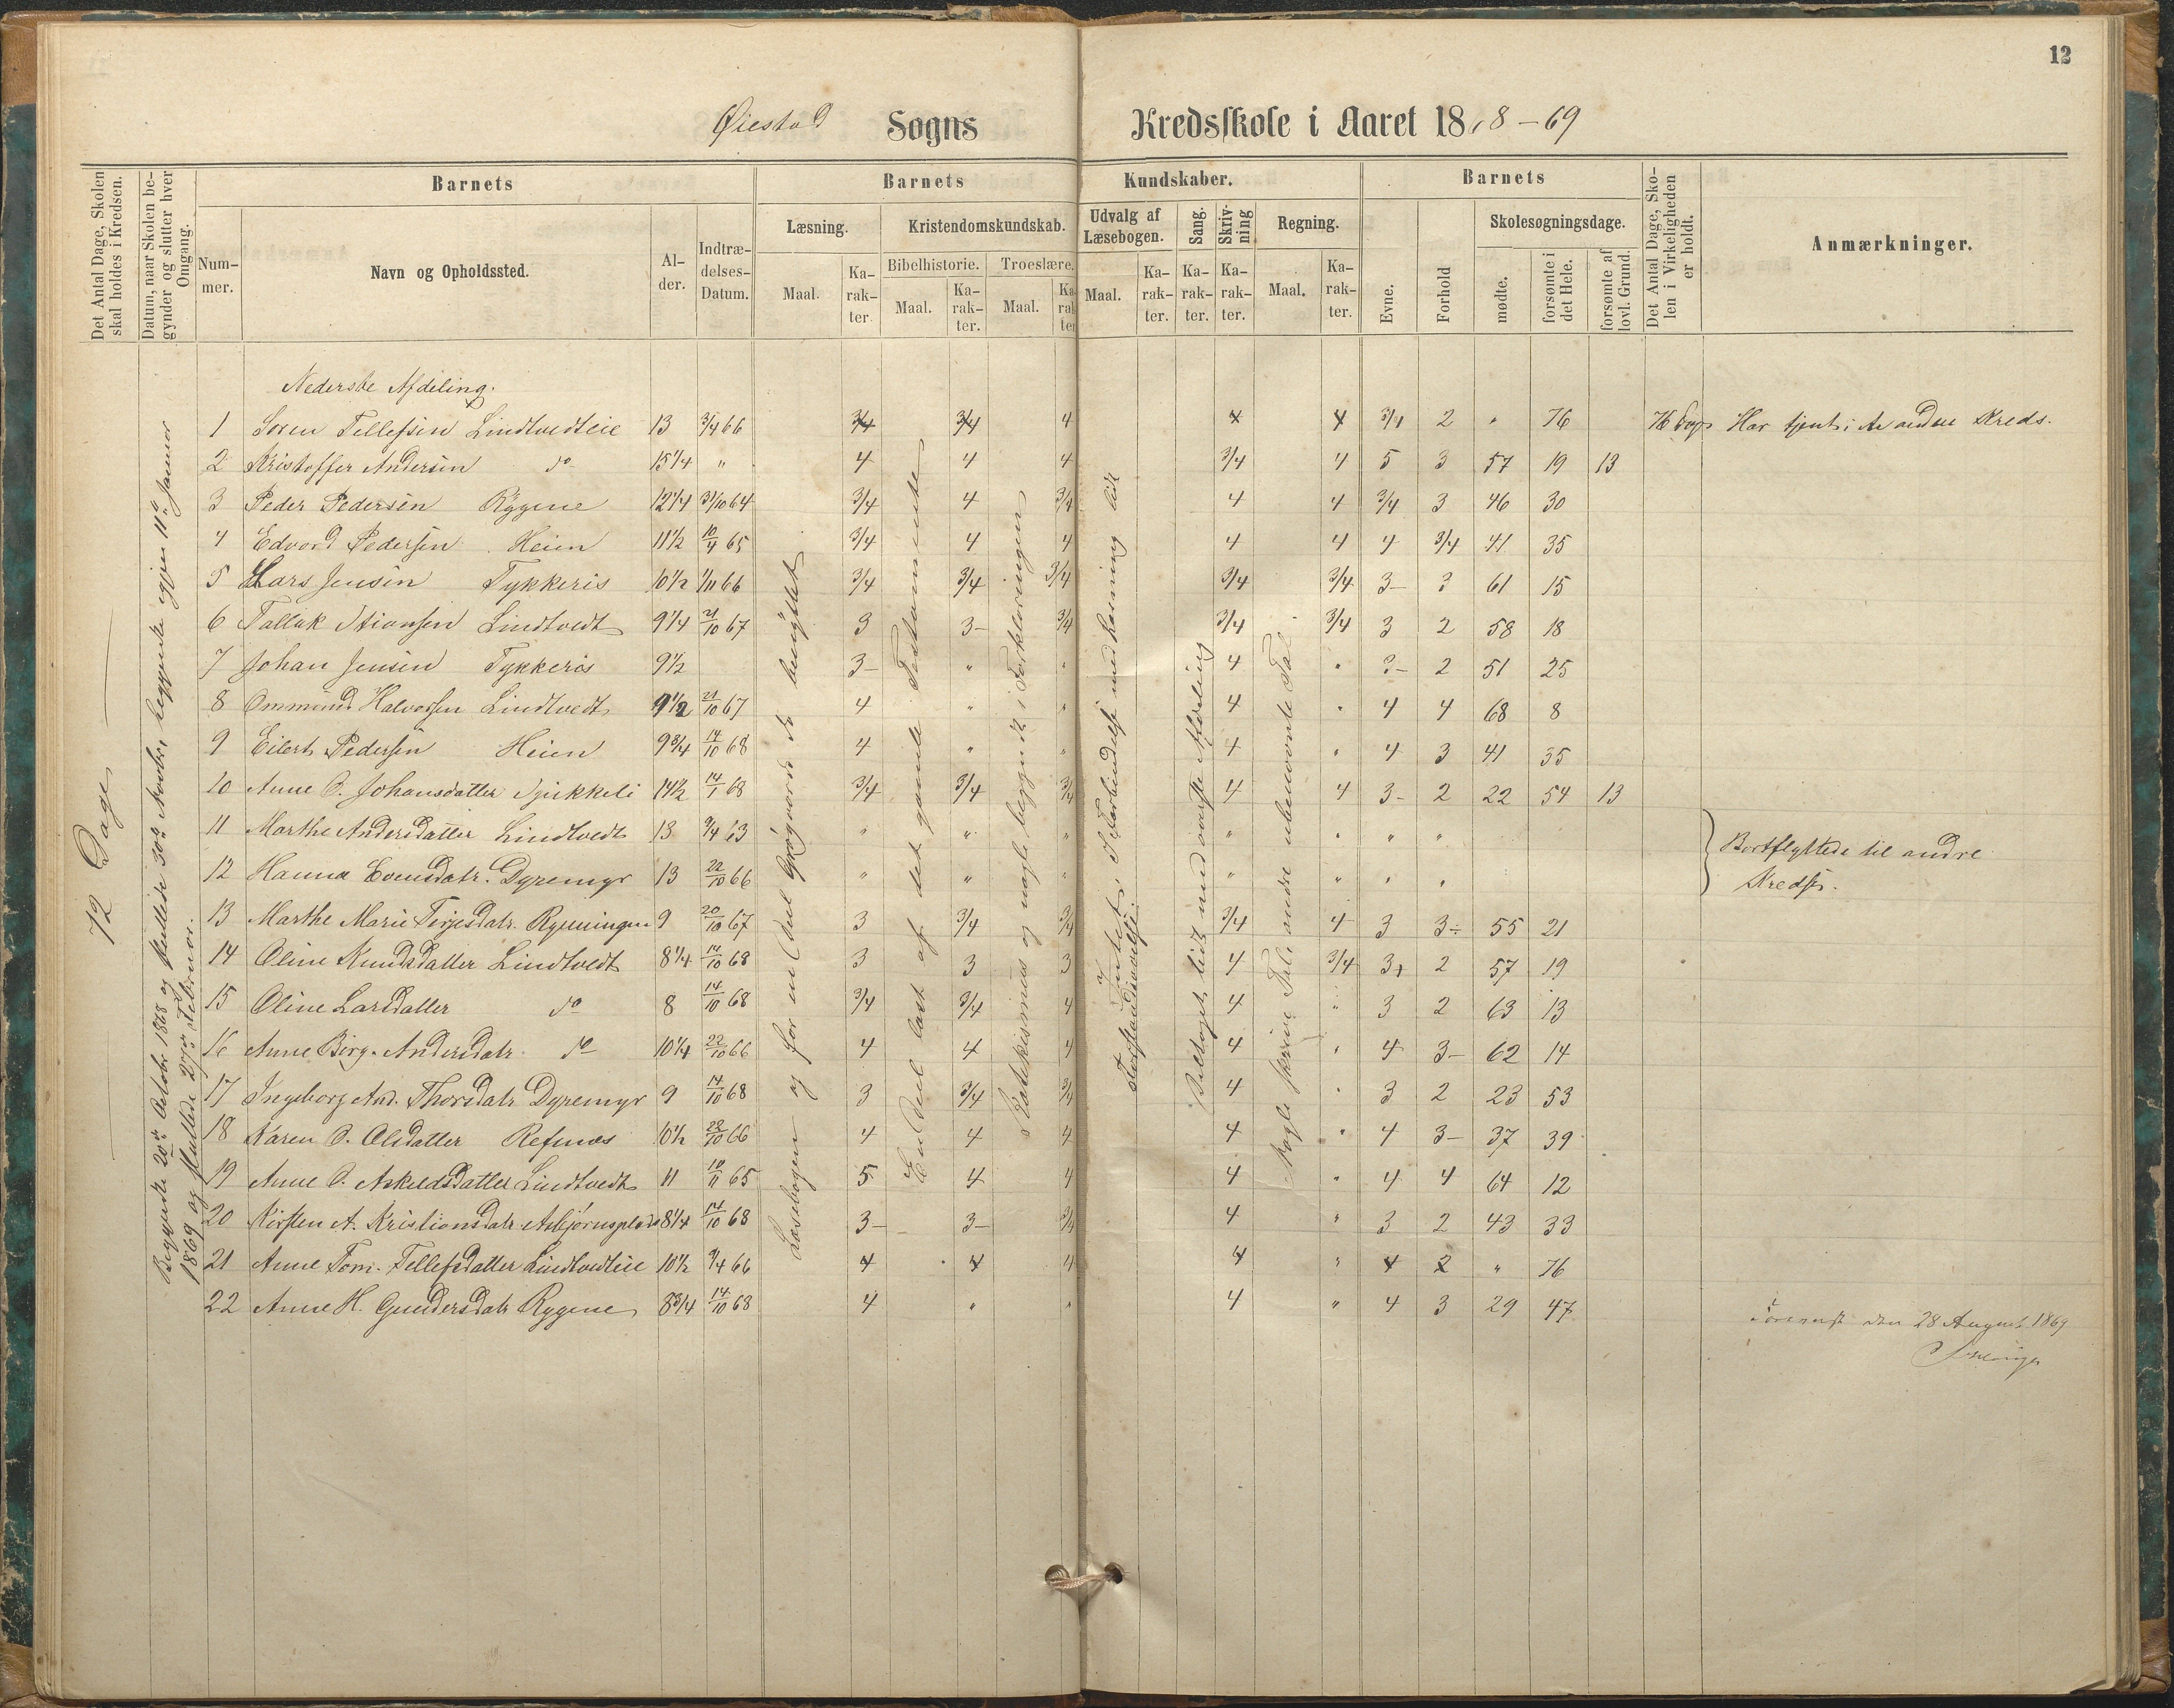 12
Øiestad Sogns Kredsskole i Aaret 1868-69
Det Antal Dage, Skolen skal holdes i Kredsen.
Datum, naar Skolen begynder og slutter hver Omgang.
Barnets
Barnets Kundskaber.
Barnets
Det Antal Dage, Skolen i Virkeligheden er holdt.
Anmærkninger.
Nummer.
Navn og Opholdssted.
Alder.
Indtrædelses-Datum.
Læsning.
Kristendomskundskab.
Udvalg af Læsebogen.
Sang.
Skrivning
Regning.
Evne.
Forhold
Skolesøgningsdage.
Bibelhistorie.
Troeslære.
mødte.
forsømte i det Hele.
forsømte af lovl. Grund.
Maal. Karakter. Maal. Karakter. Maal. Karakter. Maal. Karakter. Karakter. Karakter. Maal. Karakter.
72 Dage
Begyndte 20de October 1868 og sluttede 30te Novbr., begyndte igjen 11te Januar
1869 og sluttede 27de Februar.
Læsebogen og for en Deel Grøgaards do benyttet
En Deel læst af det gamle Testamente
Katekismus og nogle begyndt i Forklaringen
Intet, i Forbindelse med Læsning lidt
Forstandsøvelse.
Deeltaget lidt med øverste Afdeling
Nogle skrive Tal, andre ubenævnte Tal
Nederste Afdeling.
1 Søren Tellefsen Lindtvedteie 13 3/4 66 3/4 3/4 4 4 4 3/4 2 " 76 76 Dage Har tjent i en anden Kreds.
2 Kristoffer Andersen do 15 1/4 " 4 4 4 3/4 4 5 3 57 19 13
3 Peder Pedersen Rygene 12 1/4 31/10 64 3/4 4 3/4 4 4 3/4 3 46 30
4 Edvard Pedersen Heien 11 1/2 10/4 65 3/4 4 4 4 4 4 3/4 41 35
5 Lars Jensen Tykkeris 10 1/2 1/11 66 3/4 3/4 3/4 3/4 3/4 3- 3 61 15
6 Tallak Stiansen Lindtvedt 9 1/4 21/10 67 3 3- 3/4 3/4 3/4 3 2 58 18
7 Johan Jensen Tykkeris 9 1/2 3- " " 4 " 3- 2 51 25
8 Ommund Halvorsen Lindtvedt 9 1/2 21/10 67 4 " " 4 " 4 4 68 8
9 Eilert Pedersen Heien 9 3/4 14/10 68 4 " " 4 " 4 3 41 35
10 Anne O. Johansdatter Sjukkeli 14 1/2 14/1 68 3/4 3/4 3/4 4 4 3- 2 22 54 13
11 Marthe Andersdatter Lindtvedt 13 9/4 63 " " " " " " "
12 Hanna Evensdatr. Dyremyr 13 22/10 66 " " " " " " "
Bortflyttede til andre
Kredse.
13 Marthe Marie Terjesdatr. Rynningen 9 20/10 67 3 3/4 3/4 3/4 4 3 3÷ 55 21
14 Oline Knudsdatter Lindtvedt 8 1/4 14/10 68 3 3 3 4 3/4 3+ 2 57 19
15 Oline Larsdatter do 8 14/10 68 3/4 3/4 4 4 " 3 2 63 13
16 Anne Birg. Andersdatr. do 10 1/4 22/10 66 4 4 4 4 " 4 3- 62 14
17 Ingeborg And. Thorsdatr Dyremyr 9 14/10 68 3 3/4 3/4 4 " 3 2 23 53
18 Karen O. Olsdatter Refsnæs 10 1/2 22/10 66 4 4 4 4 " 4 3- 37 39
19 Anne O. Askeldsdatter Lindtvedt 11 10/11 65 5 4 4 4 " 4 4 64 12
20 Kirsten A. Kristiansdatr Asbjørnsplads 8 1/4 14/10 68 3- 3- 3/4 4 " 3 2 43 33
21 Anne Tom. Tellefsdatter Lindtvedteie 10 1/2 9/4 66 4 4 4 4 " 4 2 " 76
22 Anne H. Gundersdatr Rygene 8 3/4 14/10 68 4 " " 4 " 4 3 29 47
den 28 August 1869